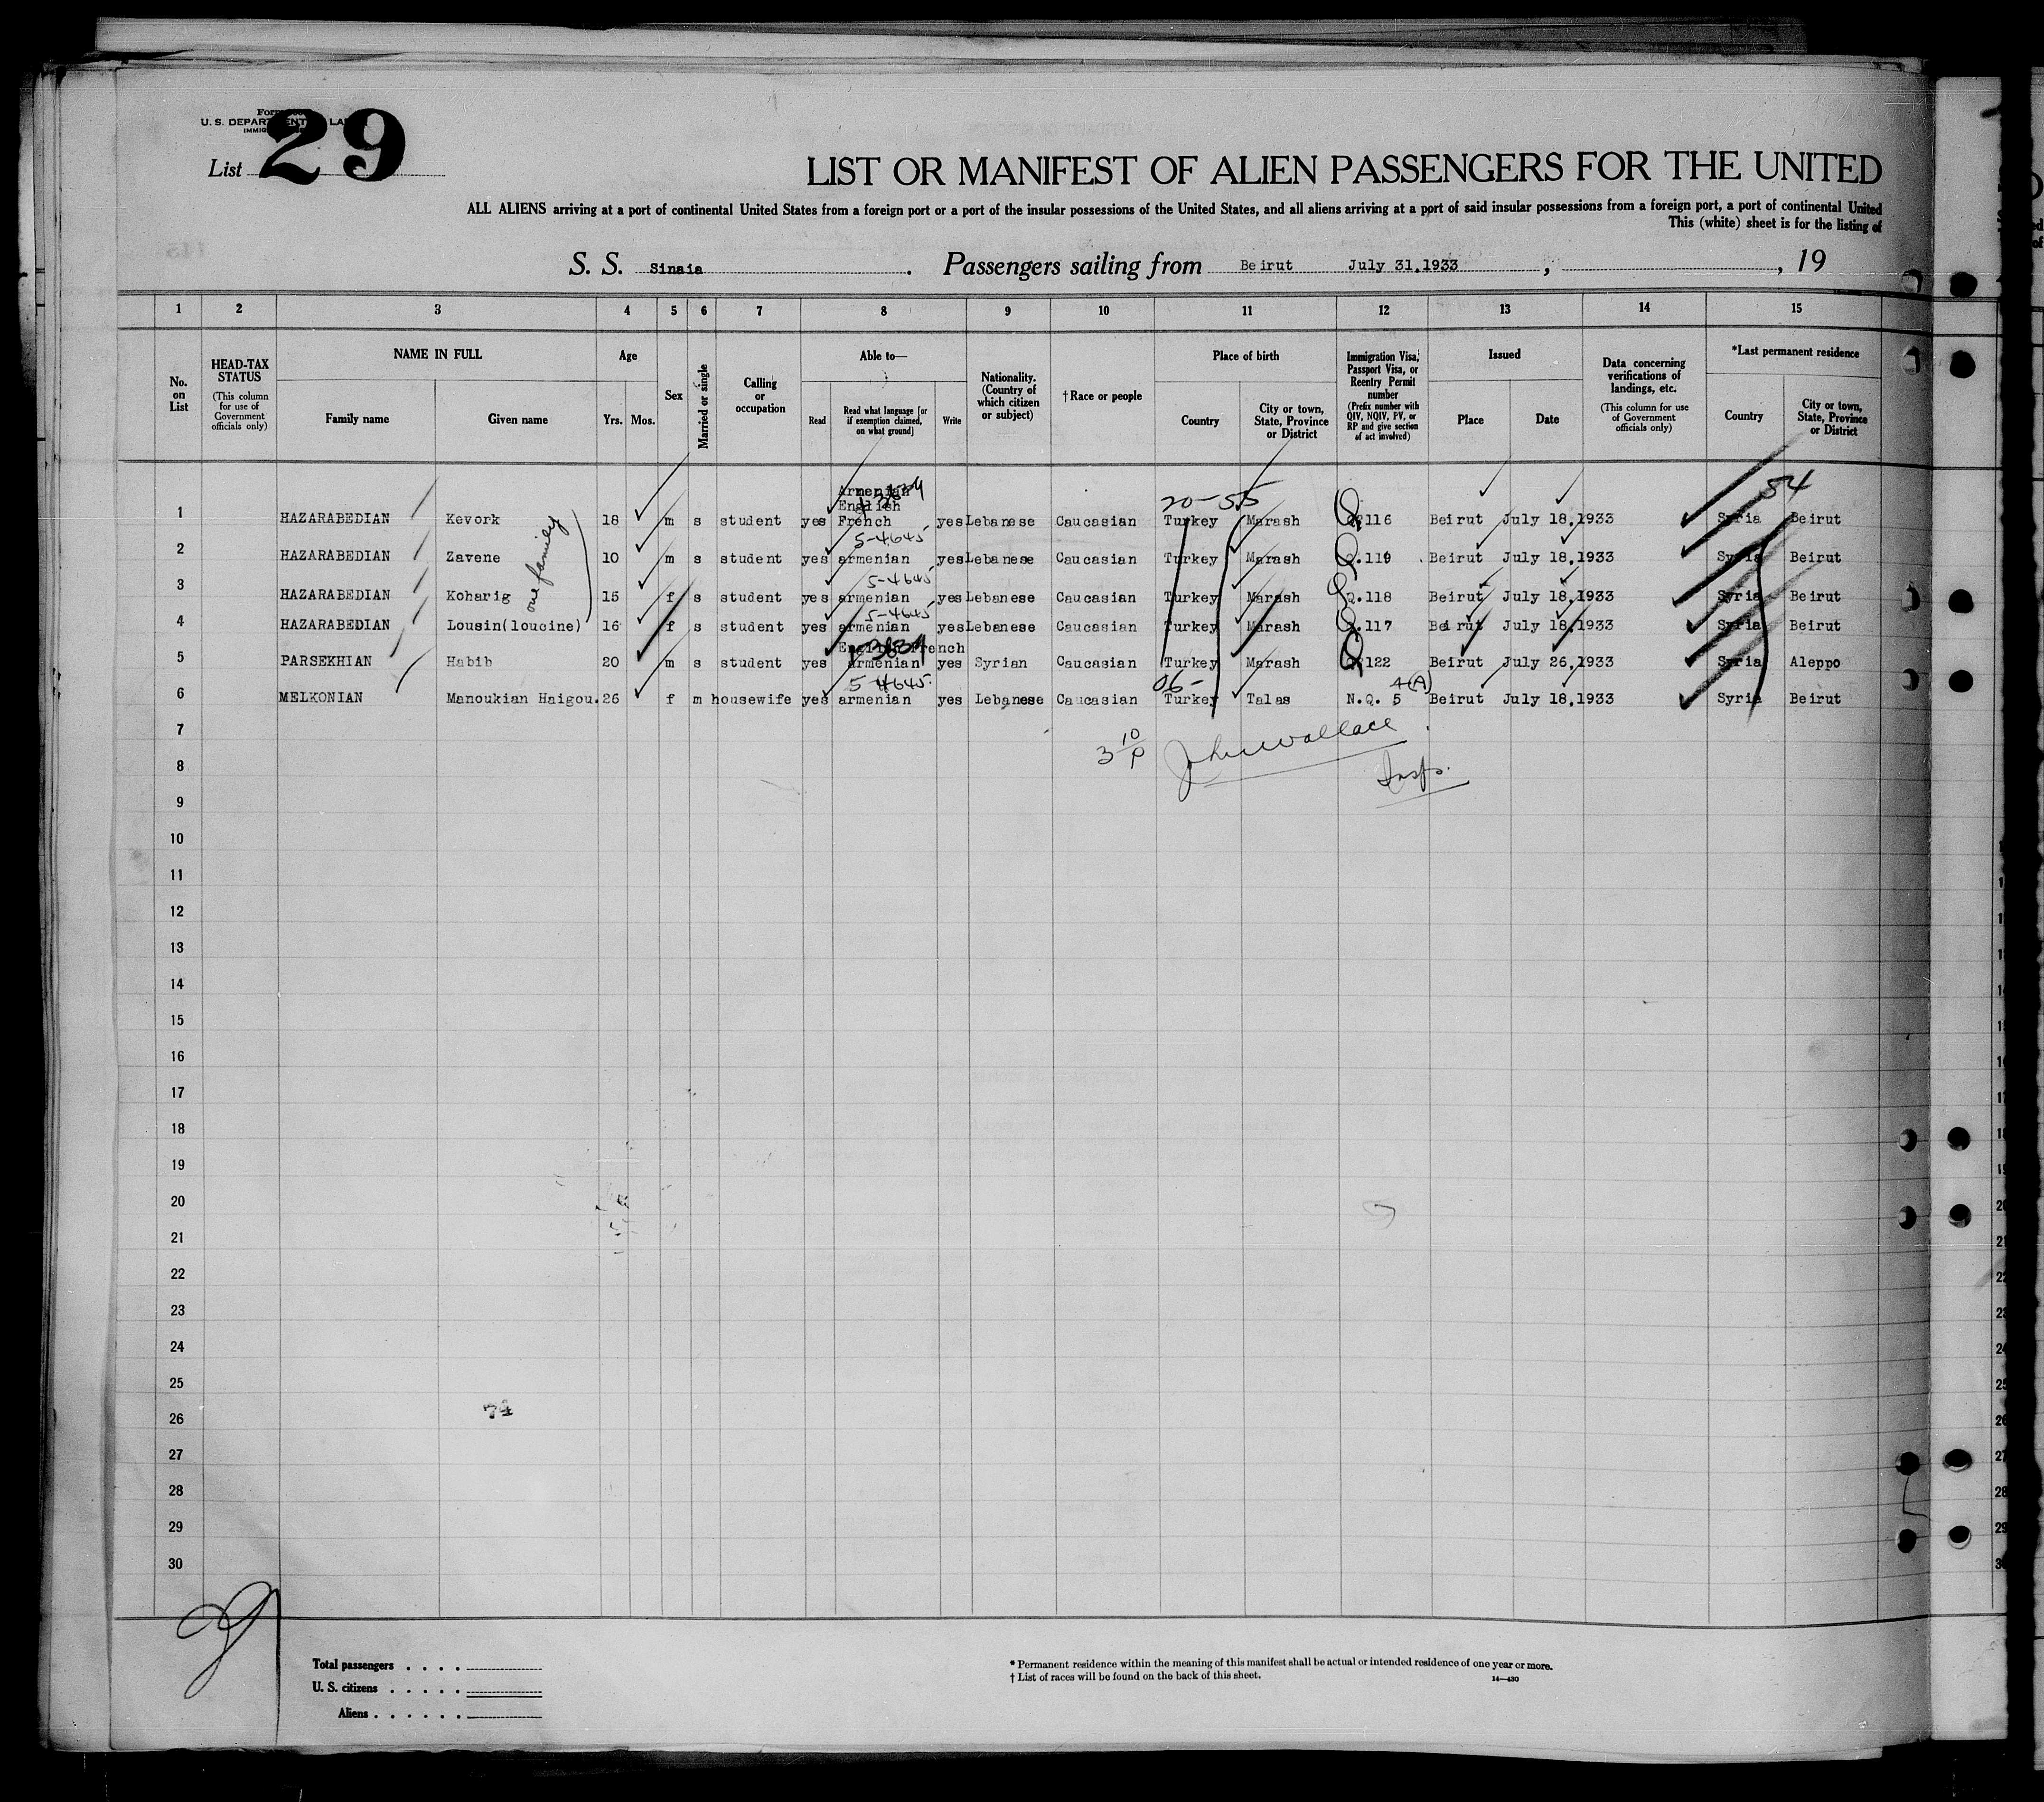 U. S. DEPARTMENT LABOR
List 29
LIST OR MANIFEST OF ALIEN PASSENGERS FOR THE UNITED
ALL ALIENS arriving at a port of continental United States from a foreign port or a port of the insular possessions of the United States, and all aliens arriving at a port of said insular possessions from a foreign port, a port of continental United
This (white) sheet is for the listing of
S. S. Sinaia . Passengers sailing from Beirut July 31.1933 , , 19
1 2 3 4 5 6 7 8 9 10 11 12 13 14 15
No. on List
HEAD-TAX STATUS (This column for use of Government officials only)
NAME IN FULL
Family name Given name
Age
Yrs. Mos.
Sex
Married or single
Calling or occupation
Able to—
Read Read what language [or if exemption claimed, on what ground] Write
Nationality. (Country of which citizen or subject)
† Race or people
Place of birth
Country City or town, State, Province or District
Immigration Visa, Passport Visa, or Reentry Permit number (Prefix number with QIV, NQIV, PV, or RP and give section of act involved)
Issued
Place Date
Data concerning verifications of landings, etc. (This column for use of Government officials only)
*Last permanent residence
Country City or town, State, Province or District
20-55 84
Armenian
English
1 HAZARABEDIAN Kevork 18 m s student yes French yes Lebanese Caucasian Turkey Marash Q.116 Beirut July 18.1933 Syria Beirut
5-4645
2 HAZARABEDIAN Zavene 10 m s student yes armenian yes Lebanese Caucasian Turkey Marash Q.119 Beirut July 18.1933 Syria Beirut
5-4645
3 HAZARABEDIAN Koharig 15 f s student yes armenian yes Lebanese Caucasian Turkey Marash Q.118 Beirut July 18.1933 Syria Beirut
5-4645
4 HAZARABEDIAN Lousin(loucine) 16 f s student yes armenian yes Lebanese Caucasian Turkey Marash Q.117 Beirut July 18.1933 Syria Beirut
one family
English French
5 PARSEKHIAN Habib 20 m s student yes armenian yes Syrian Caucasian Turkey Marash Q.122 Beirut July 26.1933 Syria Aleppo
5-4645. 06- 4(A)
6 MELKONIAN Manoukian Haigou. 26 f m housewife yes armenian yes Lebanese Caucasian Turkey Talas N.Q. 5 Beirut July 18.1933 Syria Beirut
7
3 10/P John Wallace
8
Insp.
9
10
11
12
13
14
15
16
17
18
19
20
21
22
23
24
25
26
74
27
28
29
30
Total passengers . . . .
U. S. citizens . . . . .
Aliens . . . . . .
* Permanent residence within the meaning of this manifest shall be actual or intended residence of one year or more.
† List of races will be found on the back of this sheet. 14—430